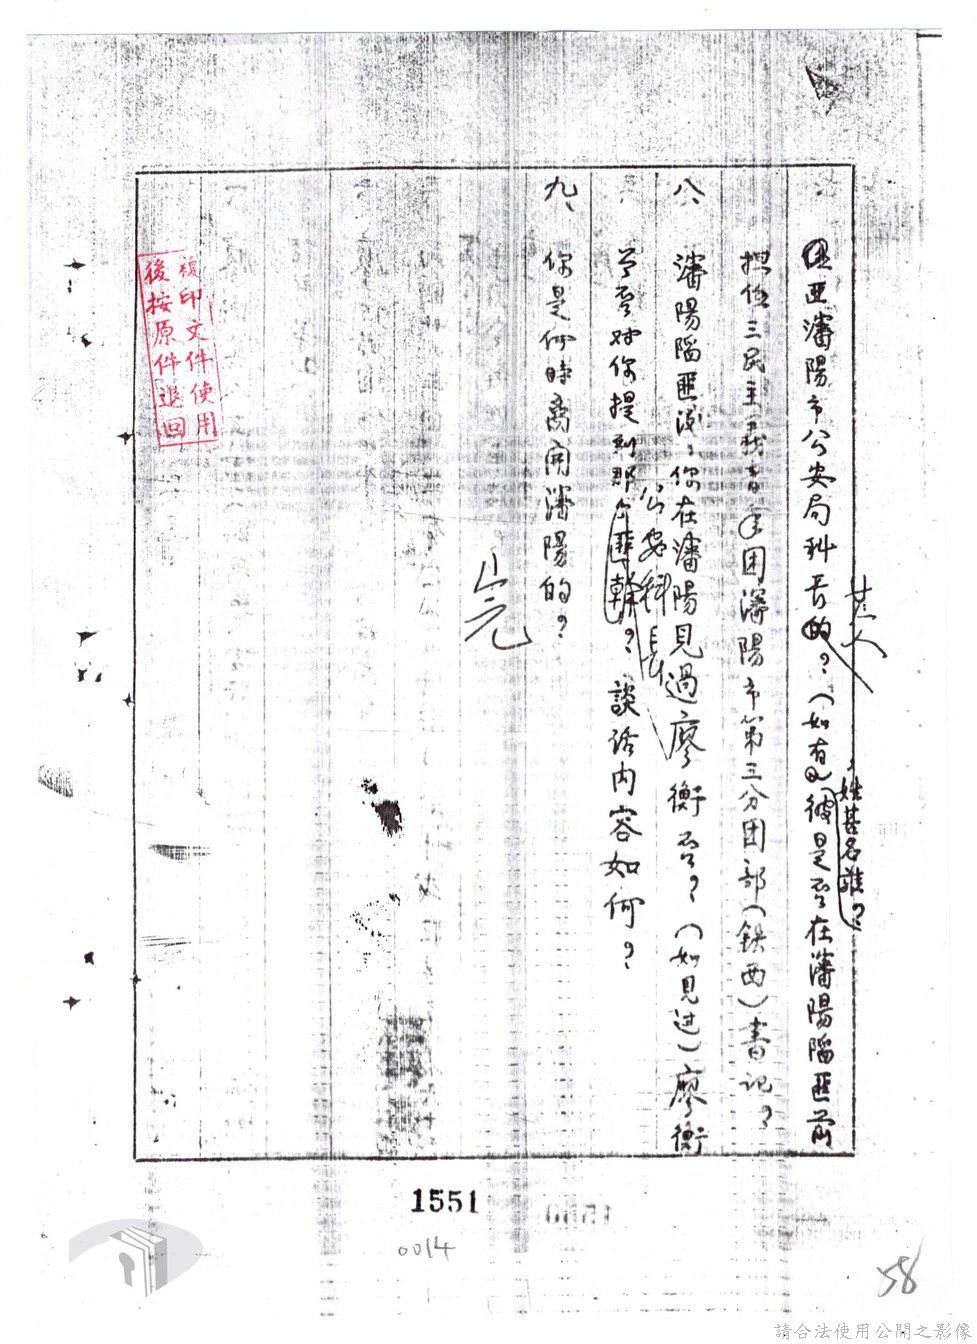 匪瀋陽市公安局科長的？（如有，彼是否在瀋陽陷匪前
某人
姓甚名誰？
担任三民主義青年团瀋陽市第三分团部（鉄西）書记？
八、瀋陽陷匪後，你在瀋陽見過廖衡否？（如見过）廖衡
公安科長
曾否对你提到那个匪幹？談话内容如何？
九、你是何時离開瀋陽的？
完
複印文件使用
後按原件退回
1551
0014
58
請合法使用公開之影像